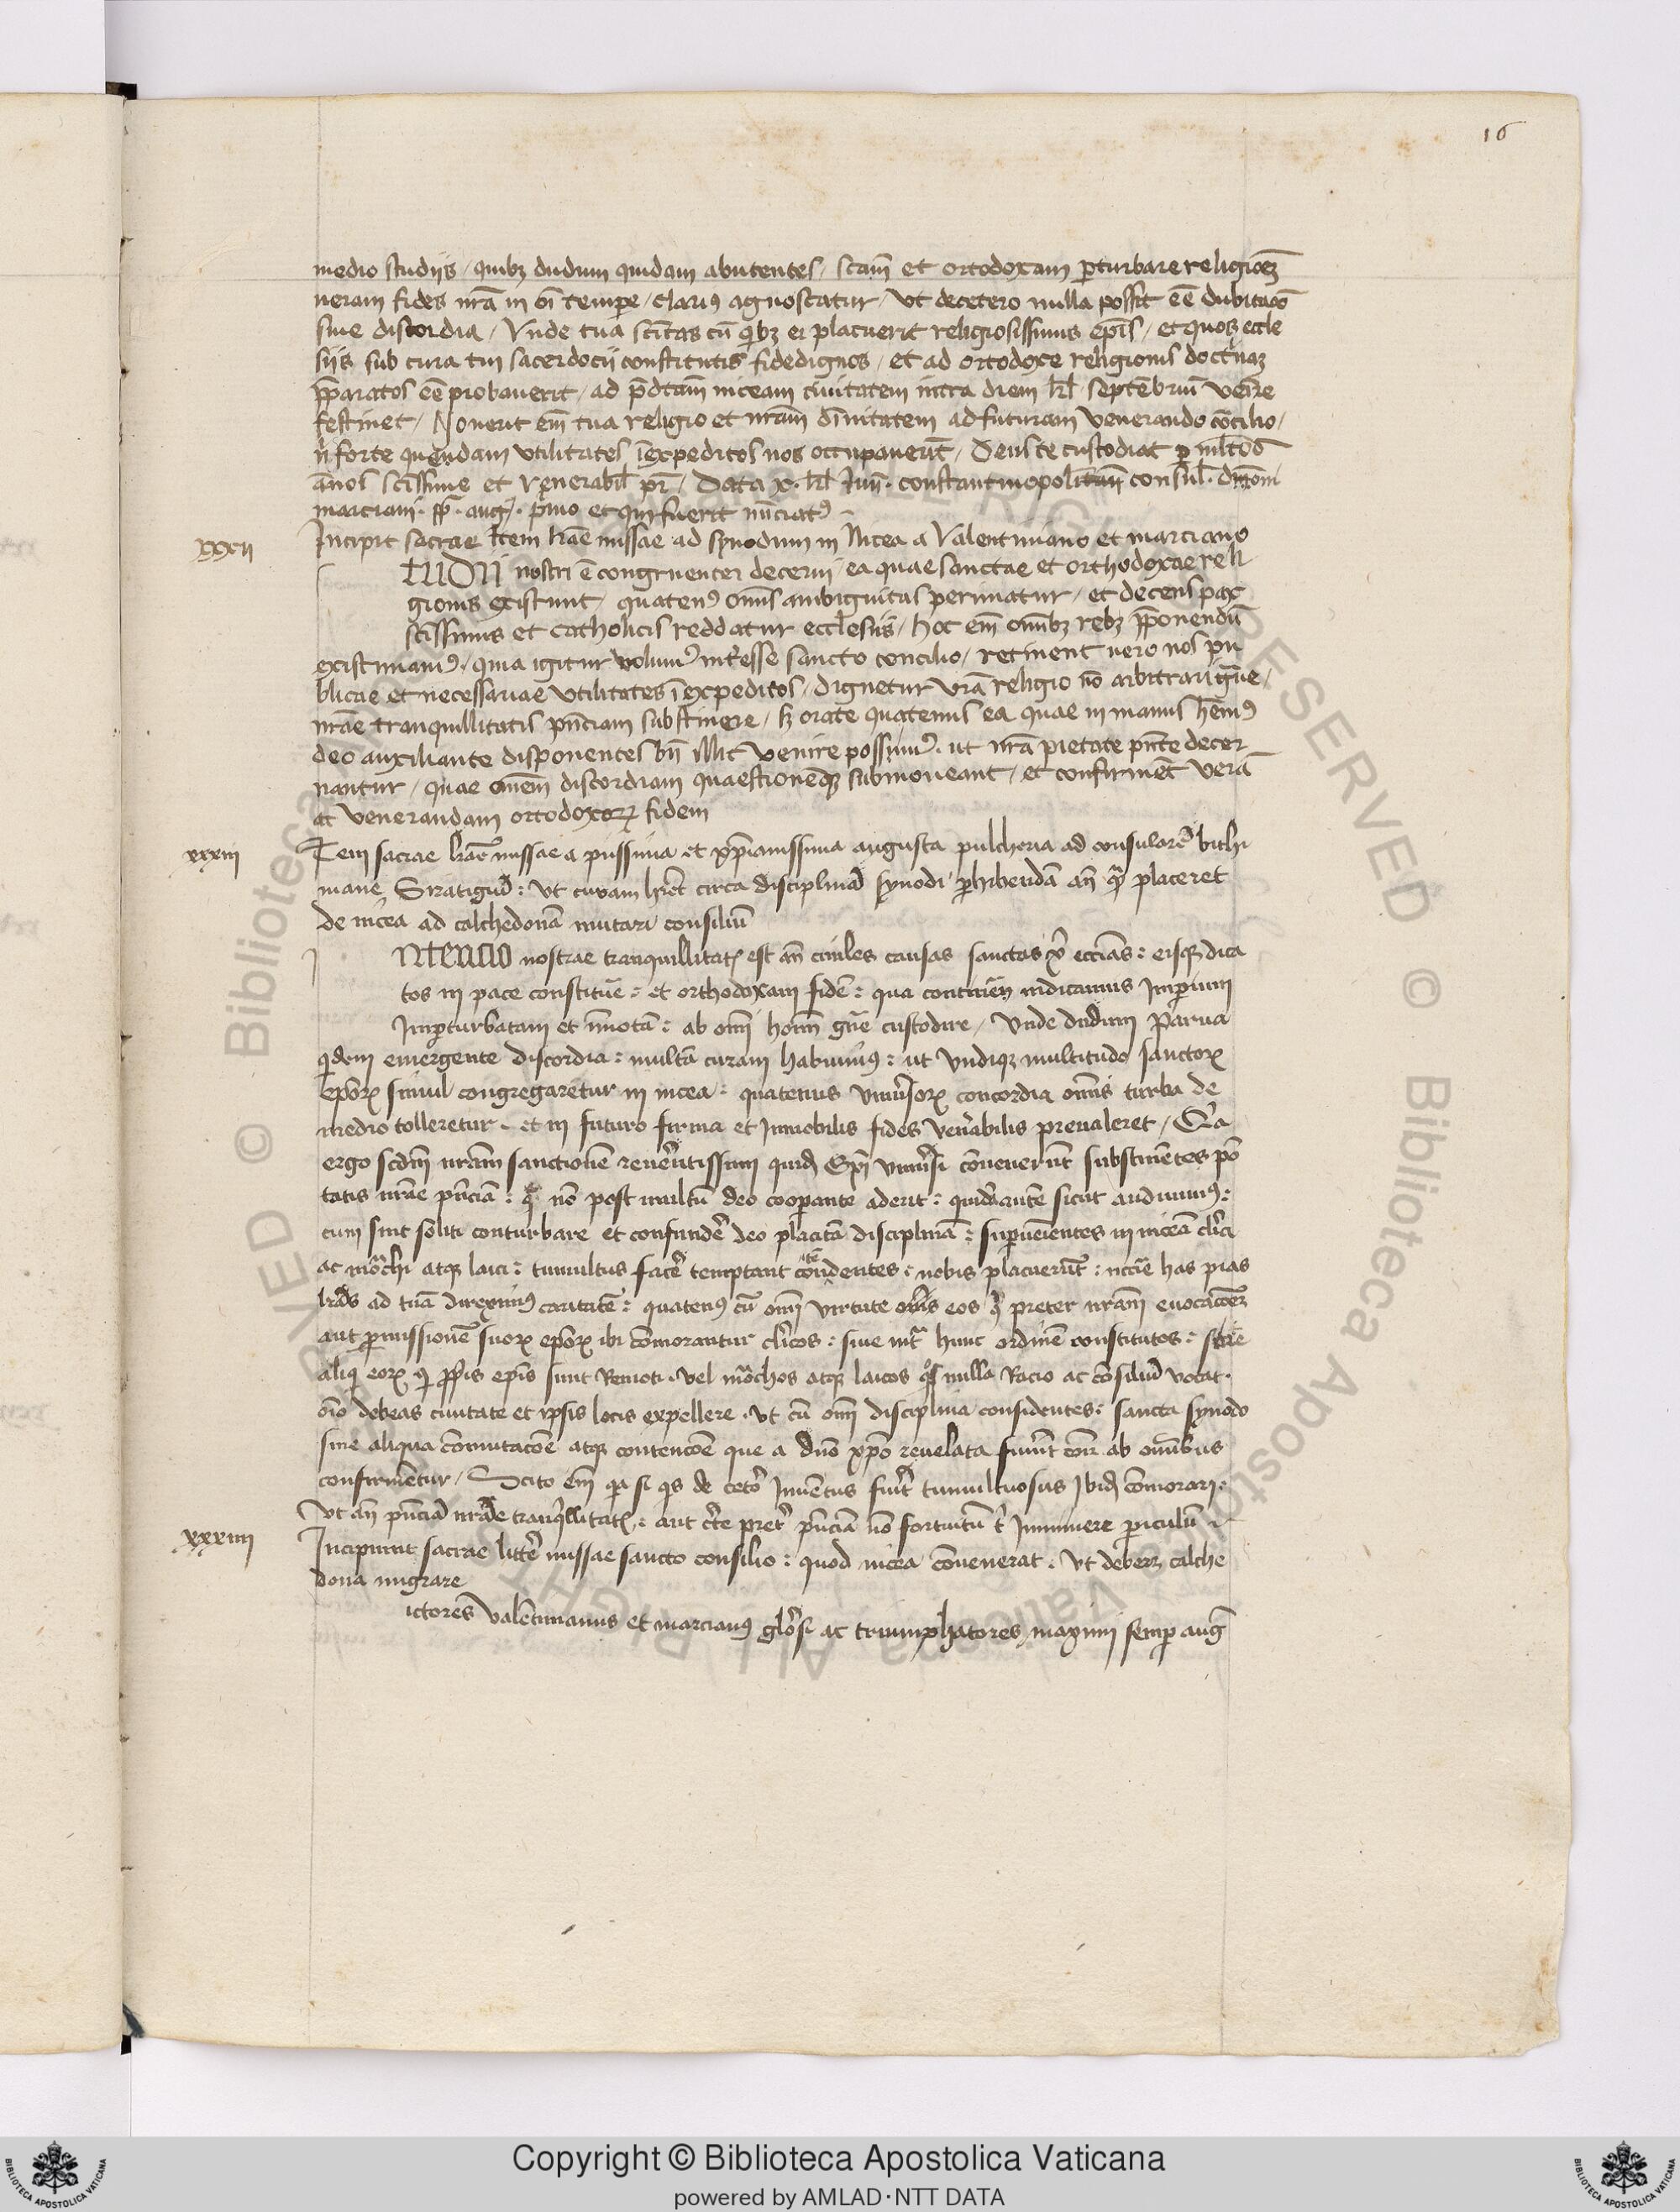 16
medio studiis / quibȝ dudum quidam abutentes / scām et ortodoxam ꝑturbare religiōeȝ
ueram fides nrā in oī tempe / clarius agnoscatur / Vt decetero nulla possit eē dubitacō
siue discordia / Vnde tua scītas cū qͥbȝ ei placuerit religiosissimis ep̄is / et quos eccle
siis sub cura tui sacerdocii constitutis fidedignos / et ad ortodoxe religionis doctͥnaȝ
p̄paratos eē probauerit / ad p̄dcām niceam ciuitatem intra diem kl septēbriū venire
festinet / Nouerit em̄ tua religio et nrām dīnitatem adfuturam venerando cōcilio /
nͥ forte quendam utilitates īexpeditos nos occupauerīt / Deus te custodiat ꝑ mltōs
ānos scīssime et venerabil pr̄ / Data x. kl Iuī. constantinopolitan consul. dn̄om
marciani. pp̄. aug. pͥmo et qui fuerit nūciatꝰ
xxxii
Incipit sacrae Item lrāe missae ad synodum in Nicea a Valentiniano et marciano
tudii nostri ē congruenter decerni / ea quae sanctae et orthodoxae reli
gionis existunt / quatenꝰ om̄is ambiguitas perimatur / et decens pax
scīssimis et catholicis reddatur ecclesiis / hoc em̄ omībȝ rebȝ p̄ponendū
existimamꝰ / quia igitur volumꝰ interesse sancto concilio / retinent uero nos pu
blicae et necessariae utilitates īexpeditos / dignetur urā religio nō arbitrari gͣue /
nrāe tranquillitatis pn̄ciam substinere / sȝ orate quatenus ea quae in manus hēmꝰ
deo auxiliante disponentes bn̄ illic venire possimꝰ. ut nrā pietate pn̄te decer
nantur / quae om̄em discordiam quaestionēqȝ submoueant / et confirmēt verā
ac venerandam ortodoxoꝝ fidem
xxxiii
Item sacrae lrāe missae a piissima et xp̄ianissima augusta pulcheria ad consularē bithi
niane Stratigū: Vt curam hr̄et circa disciplinā synodi ꝑhibendā an̄ qͣ placeret
de nicea ad calchedonā mutari consiliū
ntencio nostrae tranquillitatꝭ est an̄ ciuiles causas sanctas xͥ ecc̄ias: eisqȝ dica
tos in pace constituē: et orthodoxam fidē: qua contineri iudicamus Imperium
Imꝑturbatam et īmotā: ab om̄i homī gn̄e custodire / Vnde dudum parua
qͥdem emergente discordia: multā curam habuimꝰ: ut undiqȝ multitudo sanctoꝝ
ep̄oꝝ simul congregaretur in nicea: quatenus vniuͥsoꝝ concordia om̄is turba de
medio tolleretur. et in futuro firma et Inmobilis fides venͥabilis preualeret / Qͥa
ergo scdm̄ nrām sanctionē reuerētissimi quid Ep̄i vniuͥsi cōuenerūt substinētes pō
tatis nrāe pn̄ciā: qͣ nō post multū deo cooꝑante aderit: quidā autē sicut audiuimꝰ:
cum sint soliti conturbare et confundē deo placitā disciplinā: suꝑuenientes in niceā clͥci
ac mōchi atqȝ laici: tumultus facē temptant condentes: nobis placuerūt: nccīe has pias
lrās ad tuā direximꝰ caritatē: quatenꝰ cū om̄i virtute om̄is eos qͥ preter nrām euocacōeȝ
aut ꝑmissionē suoꝝ ep̄oꝝ ibi cōmorantur clͥicos: siue intͣ hunc ordinē constitutos: siue
aliqͥ eoꝝ qͥ ꝓpͥis ep̄is sunt Remoti. vel mōchos atqȝ laicos qͦs nulla Racio ac consiliū vocat.
oīo debeas ciuitate et ipsis locis expellere. Vt cū om̄i disciplina considentes: sancta synodo
sine aliqua cōmutacōe atqȝ contencōe que a dn̄o xp̄o reuelata fuerīt com̄ ab omībus
confirmētur / Scito em̄ qͣ si qͥs de cetō Inuentus fuͥit tumultuosus Ibid cōmorari.
Vt an̄ pn̄ciā nrāe tranqͥllitatꝭ: aut cͥte pretͥ pn̄ciā nō fortuitū tͥ Imminere ꝑiculū
xxxiiii
Incipiunt sacrae littͥe missae sancto consilio: quod nicea cōuenerat. Vt debeȝ calche
dona migrare
ictores valētinianus et marcianꝰ glōsi ac triumphatores maximi semꝑ aug̅
Copyright © Biblioteca Apostolica Vaticana
powered by AMLAD·NTT DATA